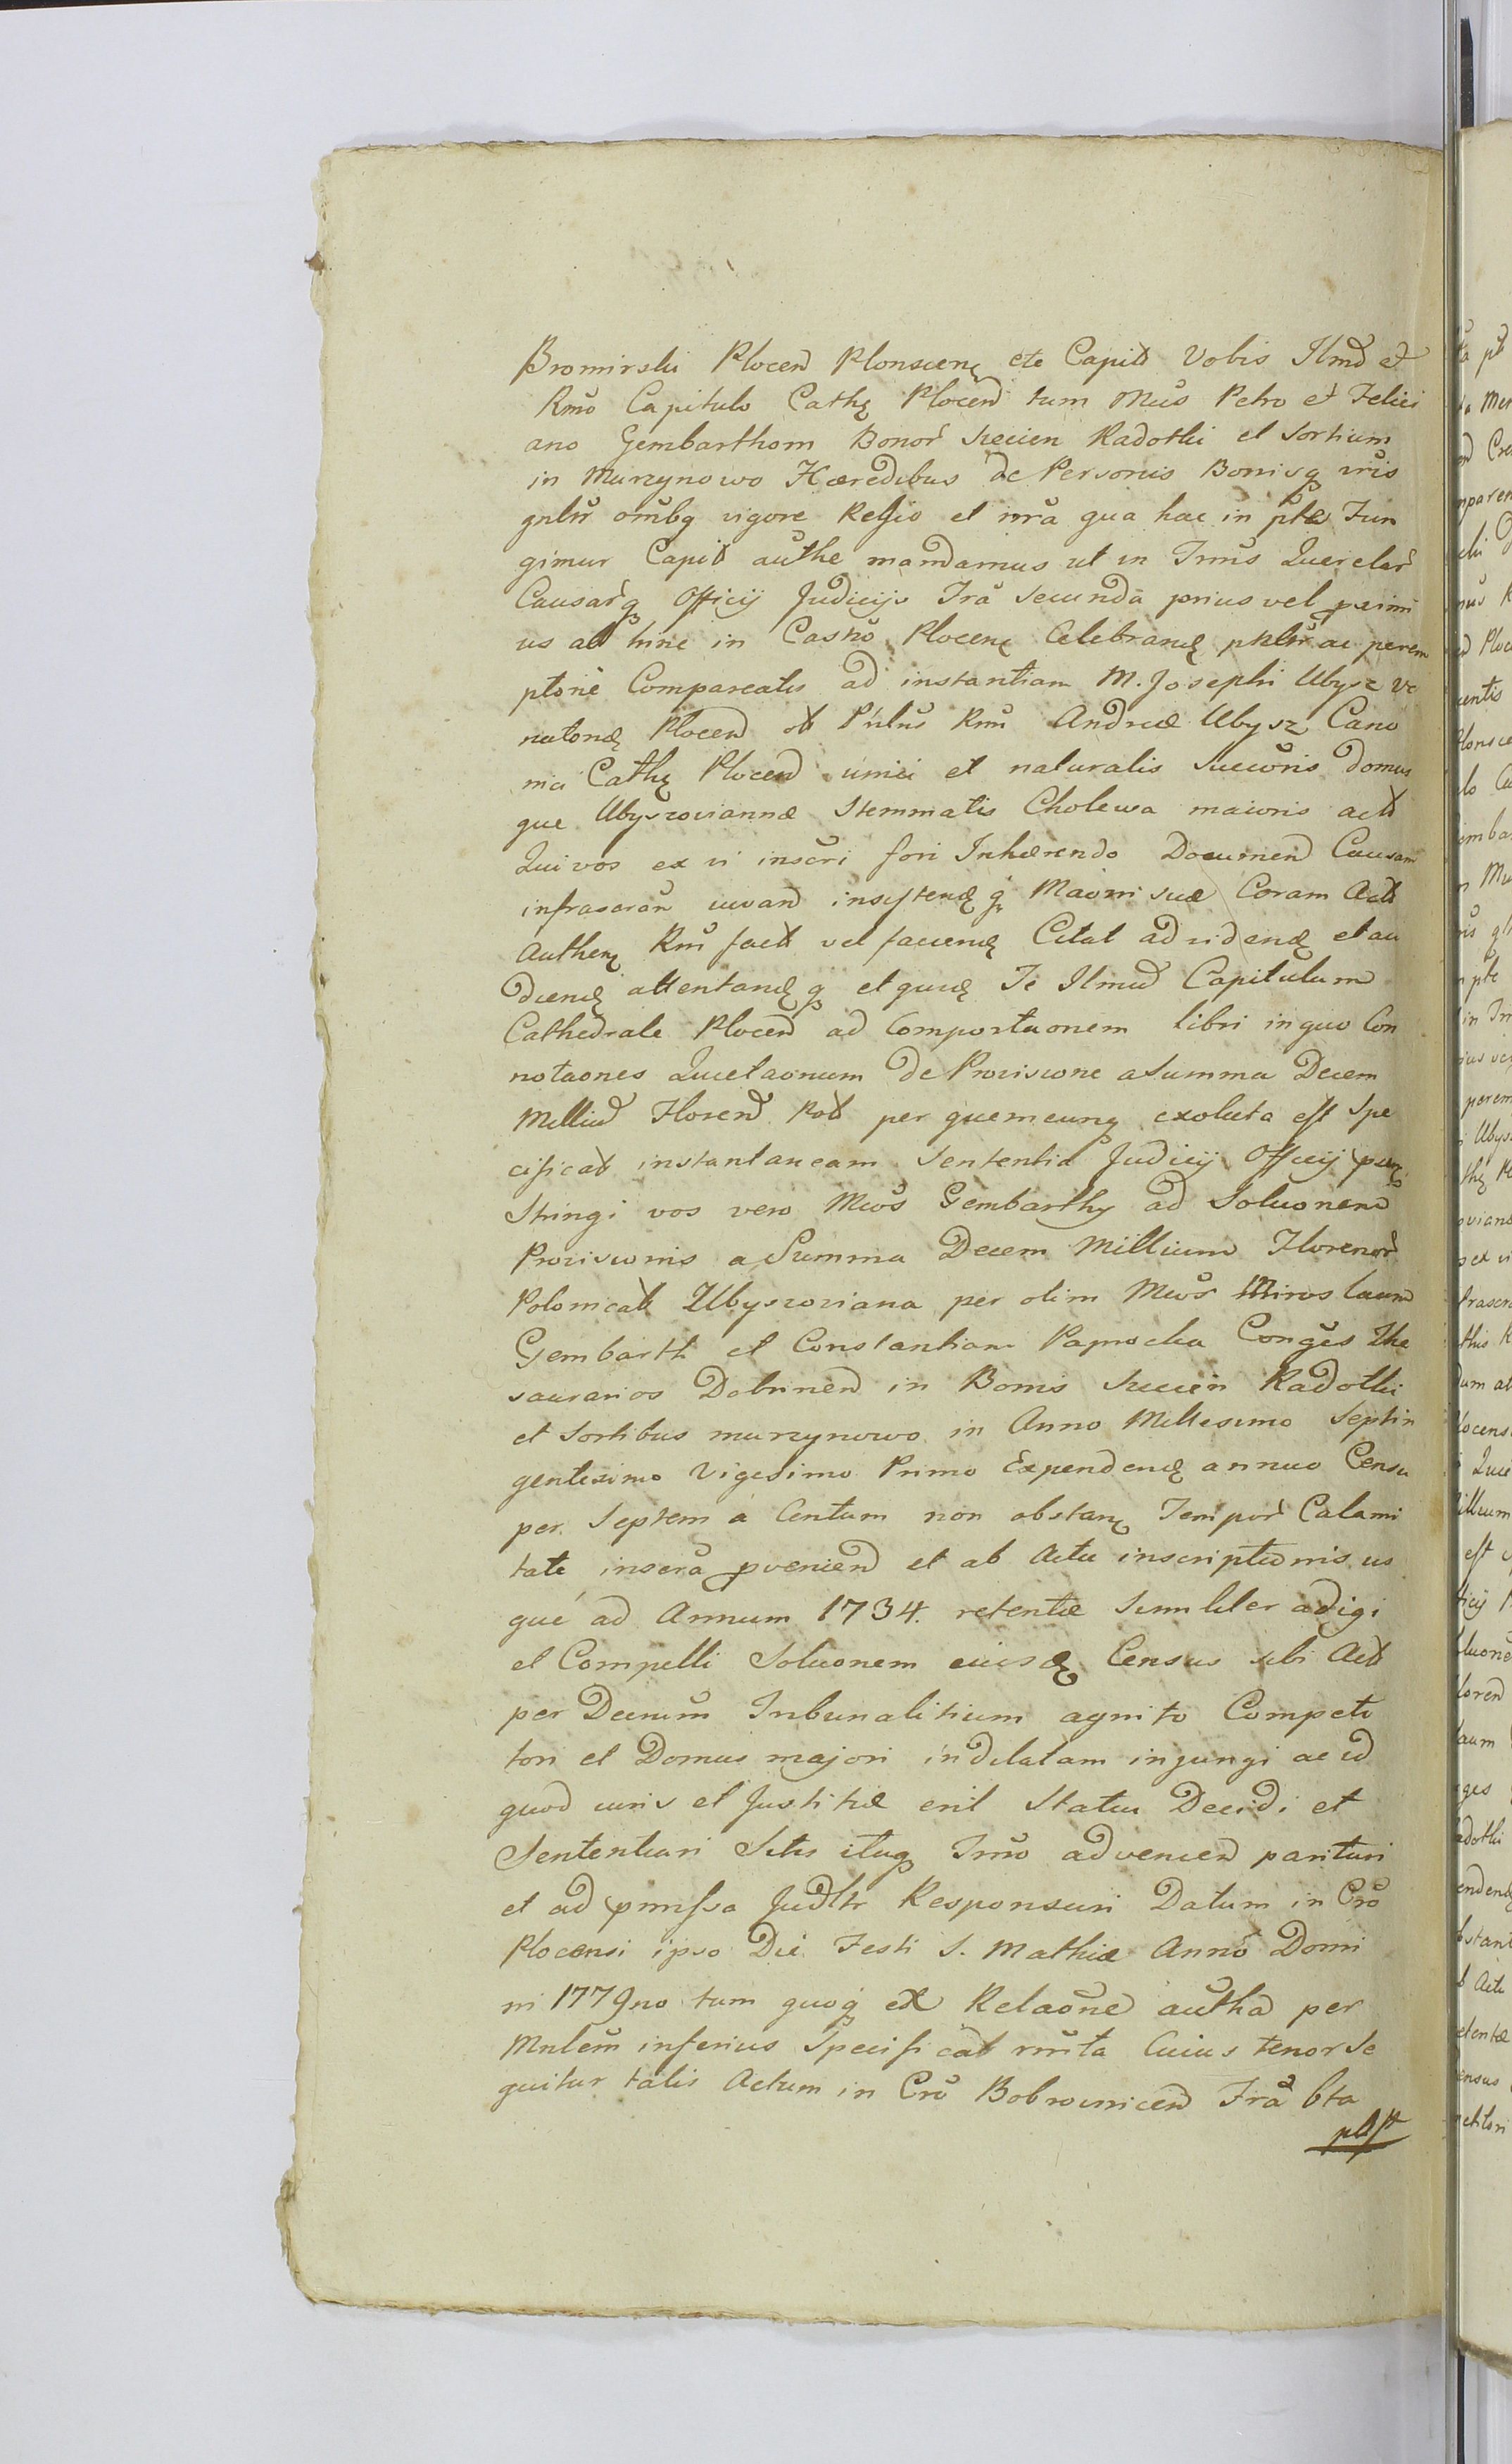 Bromirski Plocen Plonscen etc Capit Vobis Illmo et
Rmo Capitulo Cath Plocen tum Mcis Petro et Felici
ano Gembarthom Bonor Szczien Radotki et Sortium
in Murzynowo Hæredibus de Personis Bonisq vris
gnlir omibq vigore Regio et nra qua hac in pte Fun
gimur Capit authe mandamus ut in Trmis Querelar
Causarq Officij Judicijs Fra secunda prius vel proxim
us ab hinc in Castro Plocen Celebrand psnlir ac perem
ptorie Compareatis ad instantiam M. Josephi Ubysz Ve
natorid Plocen ol Prlus Rmi Andreæ Ubysz Cano
nici Cath Plocen unici et naturalis Succoris domus
que Ubyszovianæ Stemmatis Cholewa maioris act
Qui vos ex vi inscri fori Inhærendo Documen Causam
infrascrõn iuvan insystend q Maõrii suæ Coram Act
Authen Rmi fact vel faciend Citat ad vidend et au
diend attentand q et quid Te Illmum Capitulum
Cathedrale Plocen ad Comportaonem libri in quo Con
notaones Quietaonum de Provisione a Summa Decem
Millium Floren Pol per quemcunq exoluta est Spe
cificat instantaneam Sententia Judicij Officij pns
Stringi vos vero Mcos Gembarthy ad Soluonem
Provisionis a Summa Decem Millium Florenor
Polonicał Ubyszoviana per olim Mcos Miroslaum
Gembarth et Constantiam Paprocka Conges The
saurarios Dobrinen in Bonis Szczien Radotki
et Sortibus murzynowo in Anno Millesimo Septin
gentesimo Vigesimo Primo Expendend annuo Censu
per Septem a Centum non obstan Tempor Calami
tate inscra pvenien et ab Actu inscriptionis us
que ad Annum 1734. retentæ Similiter adigi
et Compelli Soluonem eiusd Census sibi Act
per Decrum Tribunalitium agnito Competi
tori et Domus majori indilatam injungi ac id
quod iuris et Justitiæ erit Statui Decidi et
Sententiari Sitis itaq Trmo advenien parituri
et ad pmissa Judltr Responsuri Datum in Cro
Plocensi ipso Die Festi S. Mathiæ Anno Domi
ni 1779no tum quoq et Relaone autha per
Mnlem inferius Specificat rmta Cuius tenor Se
quitur talis Actum in Cro Bobrownicen Fra 6ta